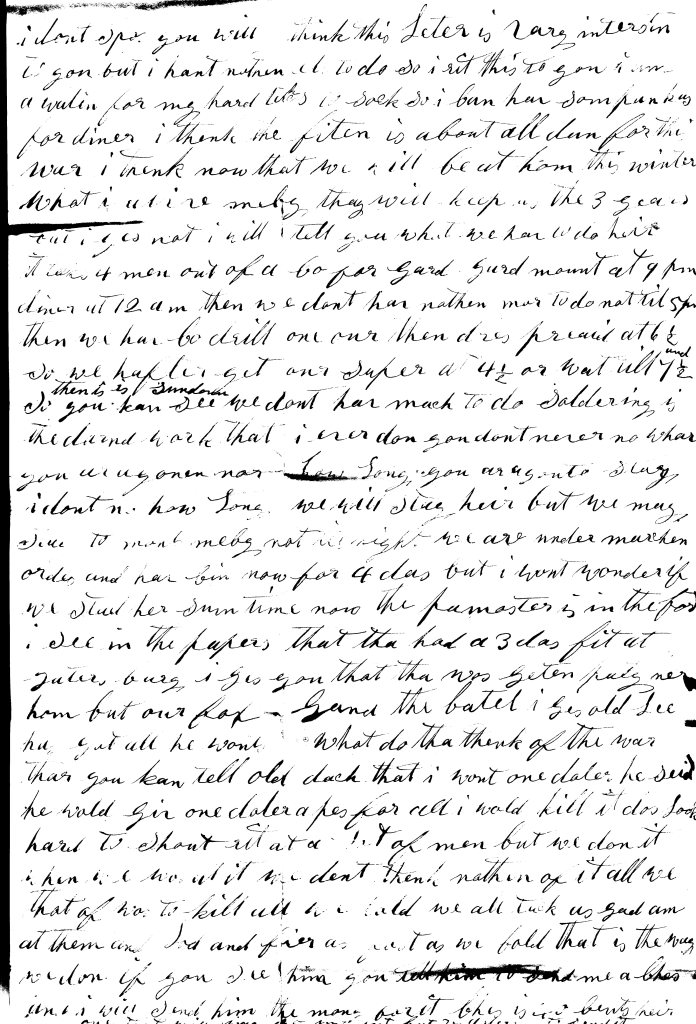 i dont spo. you will think this Leter is vary intersin
to you but i hant nothen to do so i rit this to you i am
a watin for my hard to sock so i can har som
for diner i thenk the fiten is about all dun for this
war i thenk now that we will be at hom this winter
What i meby thay will keep us the 3 years
but i ges not i will tell you what we har to do heir
it 4 men out of a Co for gard gard mount at 9 pm
diner at 12 am then we dont har nothen mor to do not til 5 pm
then we har co drill one our then dres at 6 1/2
So we hafter get our Super at 4 1/2 or wat till 7 1/2 and
then it is Sundown
So you kan See we dont har mach to do Soldering is
the darnd work that i ever don you dont never no whar
you ar a gonen nor how Long you ar a gon to Stay
i dont no how Long we will Stay heir but we may
meby not we are under marchen
ordes and har bin now for 4 das but i wont wonder if
we Stad her Sum time now the pamaster is in the for
i See in the papers that tha had a 3 das fit at
burg i ges you that tha was geten paty ner
hom but our gand the batel i ges old Lee
has got all he wont What do tha thenk of the war
thar you kan tell old dack that i wont one doler he Seid
he wold giv one doler a pes for all i wold kill it dos Look
hard to Shout at a of men but we don it
when we we dent thenk nothen of it all we
that of was to kill all we cold we all tuck as gad am
at them and Lod and fier as fast as we cold that is the way
we don if you See him you tell him to Send me a
and i will Send him the mony for it is heir